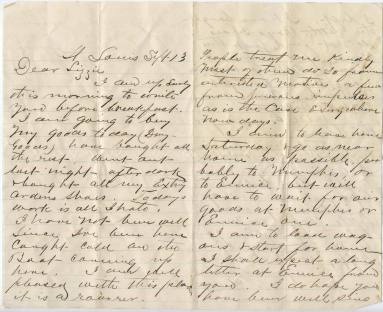 St Louis Sept 13
Dear Lizzie
I am up early
this morning to write
you before breakfast.
I am going to buy
my goods today (Dry
Goods) have bought all
the rest. Went out
last night after dark
& bought all my
Shoes. Todays
work is all I had to
I have not been well
Since Ive been here
Caught cold on the
Boat coming up
here. I am well
pleased with this place
it is a
People treat me Kindly
Most of them do so from
interested motives, a few
from
as is the Case everywhere
now days.
I aim to leave here
Saturday & go as near
home as possible prob
bably to Memphis, or
to but will
have to wait for our
goods at Memphis or
I aim to load wag
ons & start for home
I shall expect a long
letter at from
you. I do hope you
have been well since